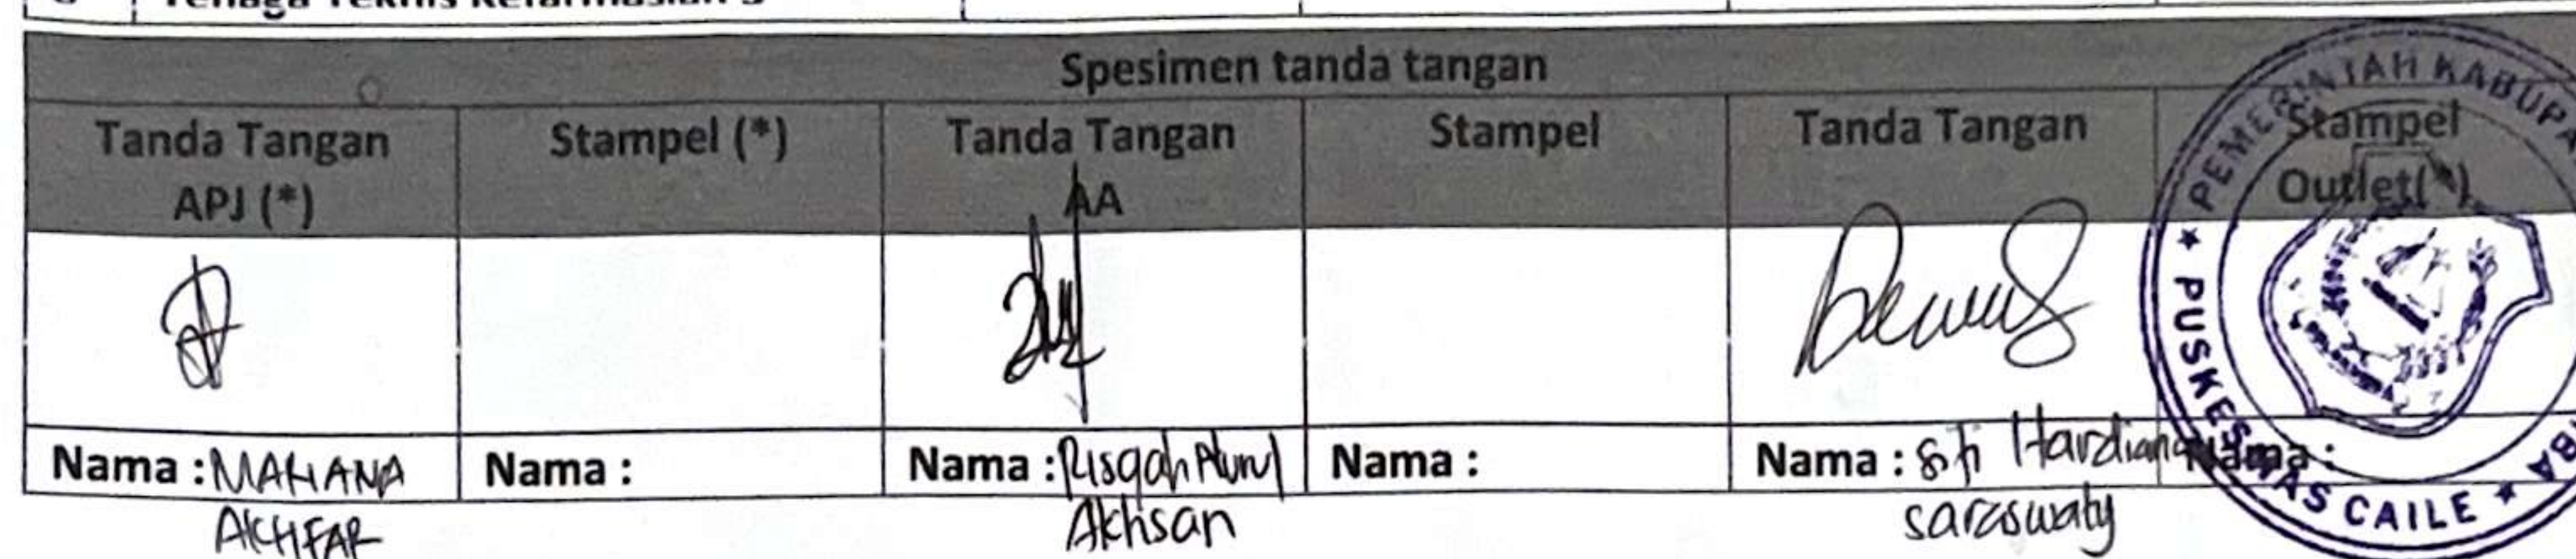 Tenaga Teknis Kefarmasian 3
Spesimen tanda tangan
Tanda Tangan APJ (*)
Stampel (*)
Tanda Tangan AA
Stampel
Tanda Tangan
Stampel Outlet(*)
Nama : MAHANA AKHFAR
Nama :
Nama : Risqah Nurul Akhsan
Nama :
Nama : Siti Hardiana saraswaty
Nama :
★ PEMERINTAH KABUPA
★ PUSKESMAS CAILE ★